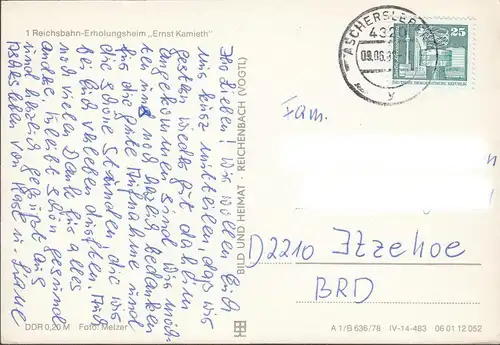 1 Reichsbahn-Erholungsheim „Ernst Kamieth"
Ihr Lieben! Wir wollen Euch
nur kurz mitteilen, daß wir
gestern wieder gut daheim
angekommen sind. Wir möch-
ten uns noch herzlich bedanken
für die gute Aufnahme und
die schöne Stunden die wir
bei Euch verleben durften. Auch
noch vielen Dank für alles
andere. Bleibt schön gesund
und herzlich gegrüßt aus
Aschersleben von
DDR 0,20 M Foto: Melzer
BILD UND HEIMAT · REICHENBACH (VOGTL)
ASCHERSLEBEN
4320
09.06.
y
25
DEUTSCHE DEMOKRATISCHE REPUBLIK
Fam.
D 2210 Itzehoe
BRD
A 1/B 636/78 IV-14-483 06 01 12 052